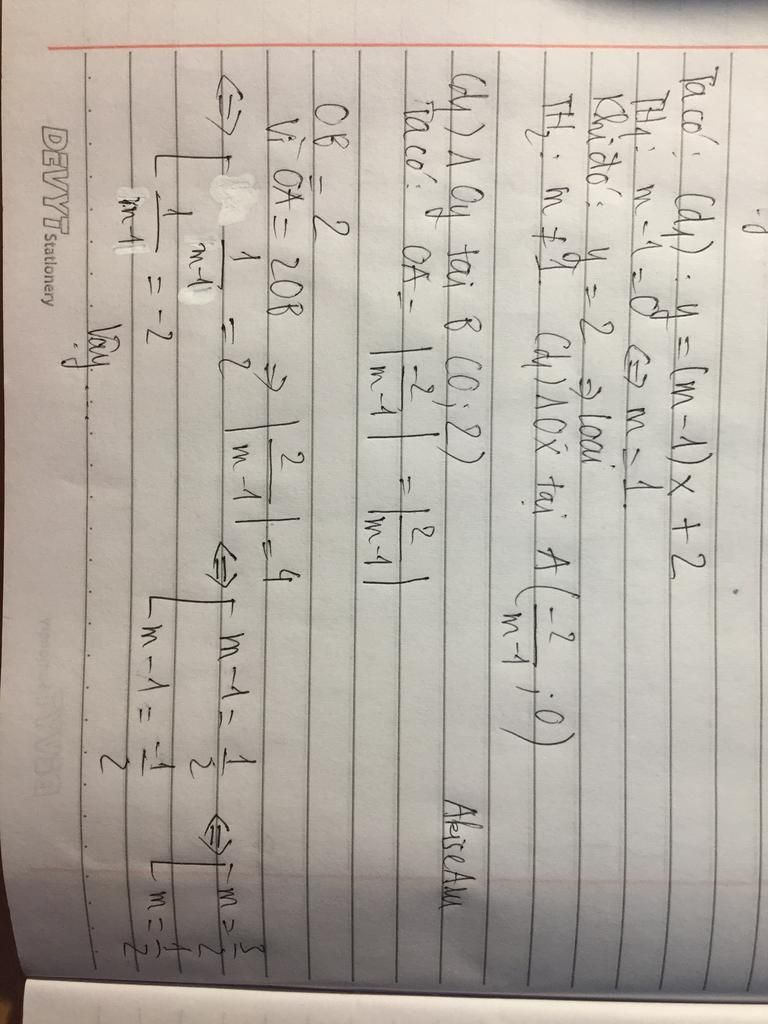 Ta có: (d1): y = (m-1)x + 2
TH1: m-1=0 ⇔ m = 1
Khi đó: y = 2 ⇒ loại
TH2: m ≠ 1 (d1) ∧ Ox tại A (-2/m-1; 0)
(d1) ∧ Oy tại B (0; 2) AkiseAru
Ta có: OA = |-2/m-1| = |2/m-1|
OB = 2
Vì OA = 2OB ⇒ |2/m-1| = 4
⇔ [ 1/m-1 = 2 ⇔ [ m-1 = 1/2 ⇔ [ m = 3/2
1/m-1 = -2 m-1 = -1/2 m = 1/2
Vậy
DEVYT Stationery